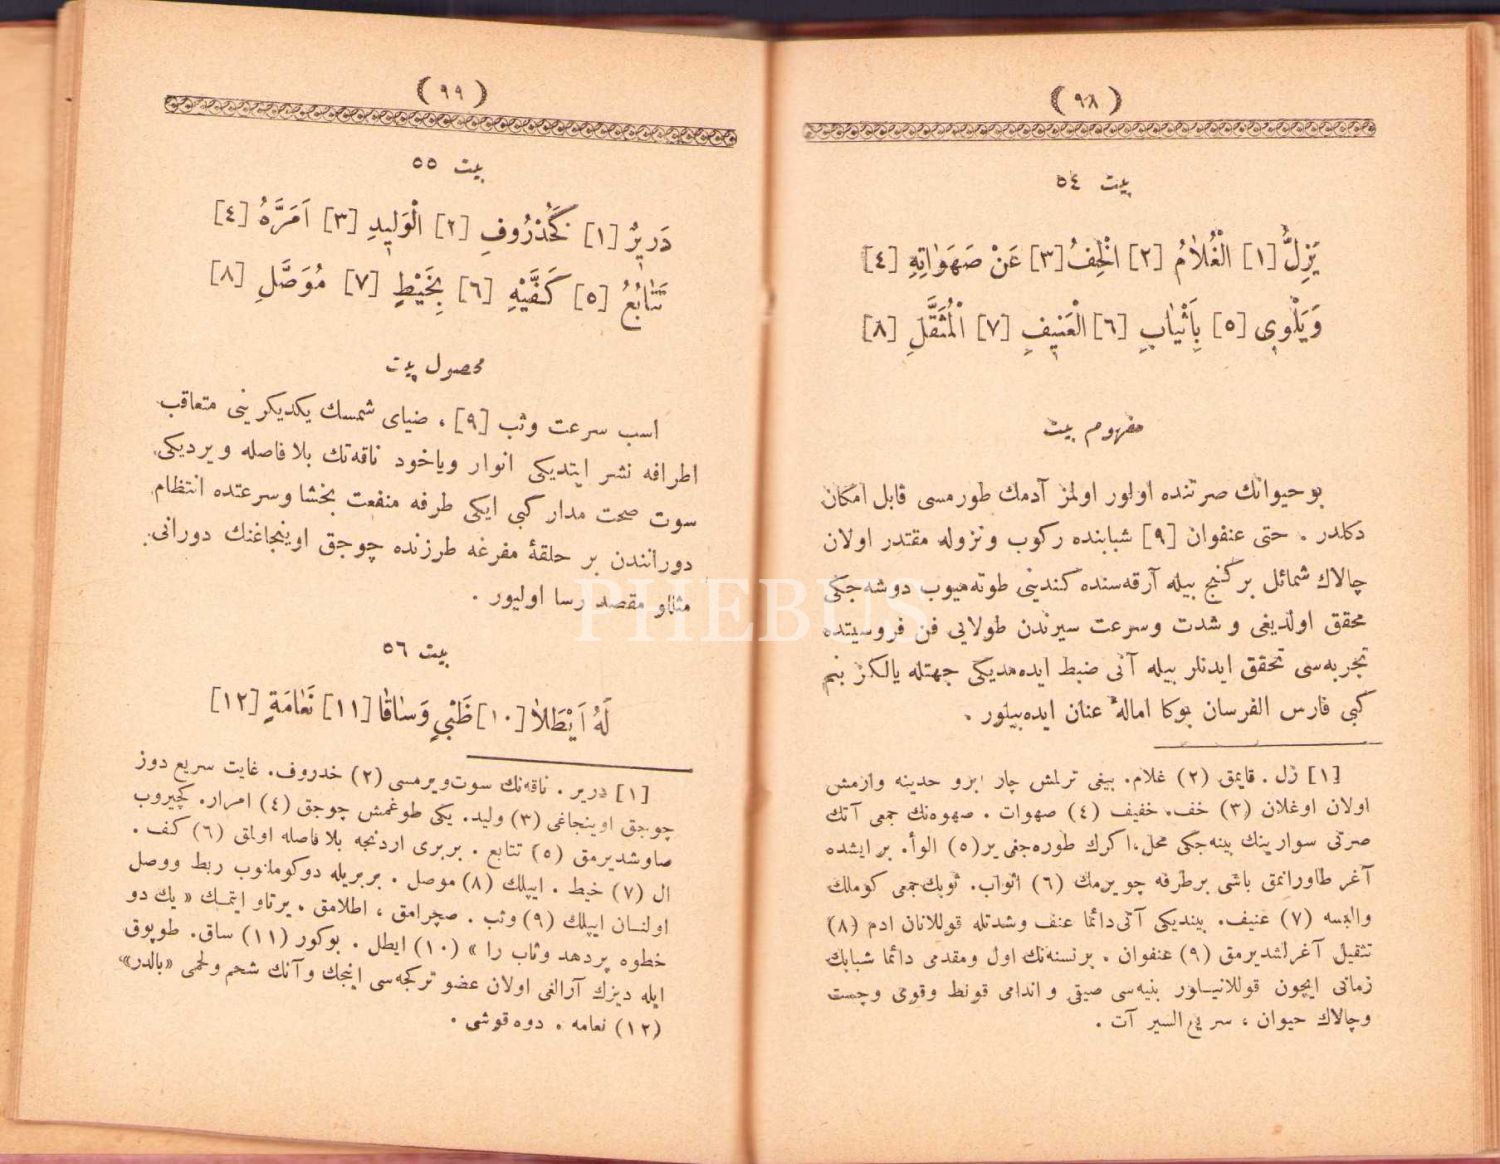 ( ٩٨ )
بيت ٥٤
يَزِلُّ [١] الْغُلاٰمُ [٢] الْخِفُ [٣] عَنْ صَهَوٰاتِهِ [٤]
وَيَلْوِى [٥] بِاَثْيٰابِ [٦] الْعَنِيفِ [٧] الْمُثَقَّلِ [٨]
مفهوم بيت
بوحيوانك صرتنده اولور اولمز آدمك طورمسى قابل امكان
دكلدر . حتى عنفوان [٩] شبابنده ركوب ونزوله مقتدر اولان
چالاك شمائل بركنج بيله آرقه‌سنده كندينى طوته‌ميوب دوشه‌جكى
محقق اولديغى و شدت وسرعت سيرندن طولايى فن فروسيتده
تجربه‌سى تحقق ايدنلر بيله آنى ضبط ايده‌مديكى جهتله يالكز بنم
كبى فارس الفرسان بوكا امالهٔ عنان ايده‌بيلور .
[١] زل . قايمق (٢) غلام. بيغى ترلمش چار ابرو حدينه وارمش
اولان اوغلان (٣) خف. خفيف (٤) صهوات . صهوه‌نك جمعى آتك
صرتى سوارينك بينه‌جكى محل، اكرك طوره‌جغى ير (٥) الوأ. برايشده
آغر طاورانمق باشى برطرفه چويرمك (٦) اثواب. ثوبك جمعى كوملك
والبسه (٧) عنيف. بينديكى آتى دائما عنف وشدتله قوللانان ادم (٨)
تثقيل آغرلشديرمق (٩) عنفوان . برنسنه‌نك اول ومقدمى دائما شبابك
زمانى ايچون قوللانيلور بنيه‌سى صيقى و اندامى قونط وقوى وچست
وچالاك حيوان ، سريع السير آت .
( ٩٩ )
بيت ٥٥
دَرِيرٌ [١] كَخُذرُوفِ [٢] الْوَلِيدِ [٣] اَمَرَّهُ [٤]
تَتٰابُعُ [٥] كَفَّيْهِ [٦] بِخَيْطٍ [٧] مُوَصَّلِ [٨]
محصول بيت
اسب سرعت وثب [٩] ، ضياى شمسك يكديكرينى متعاقب
اطرافه نشر ايتديكى انوار وياخود ناقه‌نك بلا فاصله ويرديكى
سوت صحت مدار كبى ايكى طرفه منفعت بخشا وسرعتده انتظام
دورانندن بر حلقهٔ مفرغه طرزنده چوجق اوينجاغنك دورانى
مثللو مقصد رسا اوليور .
بيت ٥٦
لَهُ اَيْطَلاٰ [١٠] ظَبْيٍ وَسٰاقٰا [١١] نَعٰامَةٍ [١٢]
[١] درير . ناقه‌نك سوت‌ويرمسى (٢) خدروف. غايت سريع دوز
چوجق اوينجاغى (٣) وليد. يكى طوغمش چوجق (٤) امرار. كچيروب
صاوشديرمق (٥) تتابع . بربرى اردنجه بلا فاصله اولمق (٦) كف .
ال (٧) خيط . ايپلك (٨) موصل . بربريله دوكوملنوب ربط ووصل
اولنان ايپلك (٩) وثب . صچرامق ، اطلامق . يرتاو ايتمك « يك دو
خطوه پردهد وثاب را » (١٠) ايطل . بوكور (١١) ساق. طوپوق
ايله ديزك آرالغى اولان عضو تركجه‌سى اينجك وآنك شحم ولحمى «بالدر»
(١٢) نعامه . دوه‌قوشى .
PHEBUS